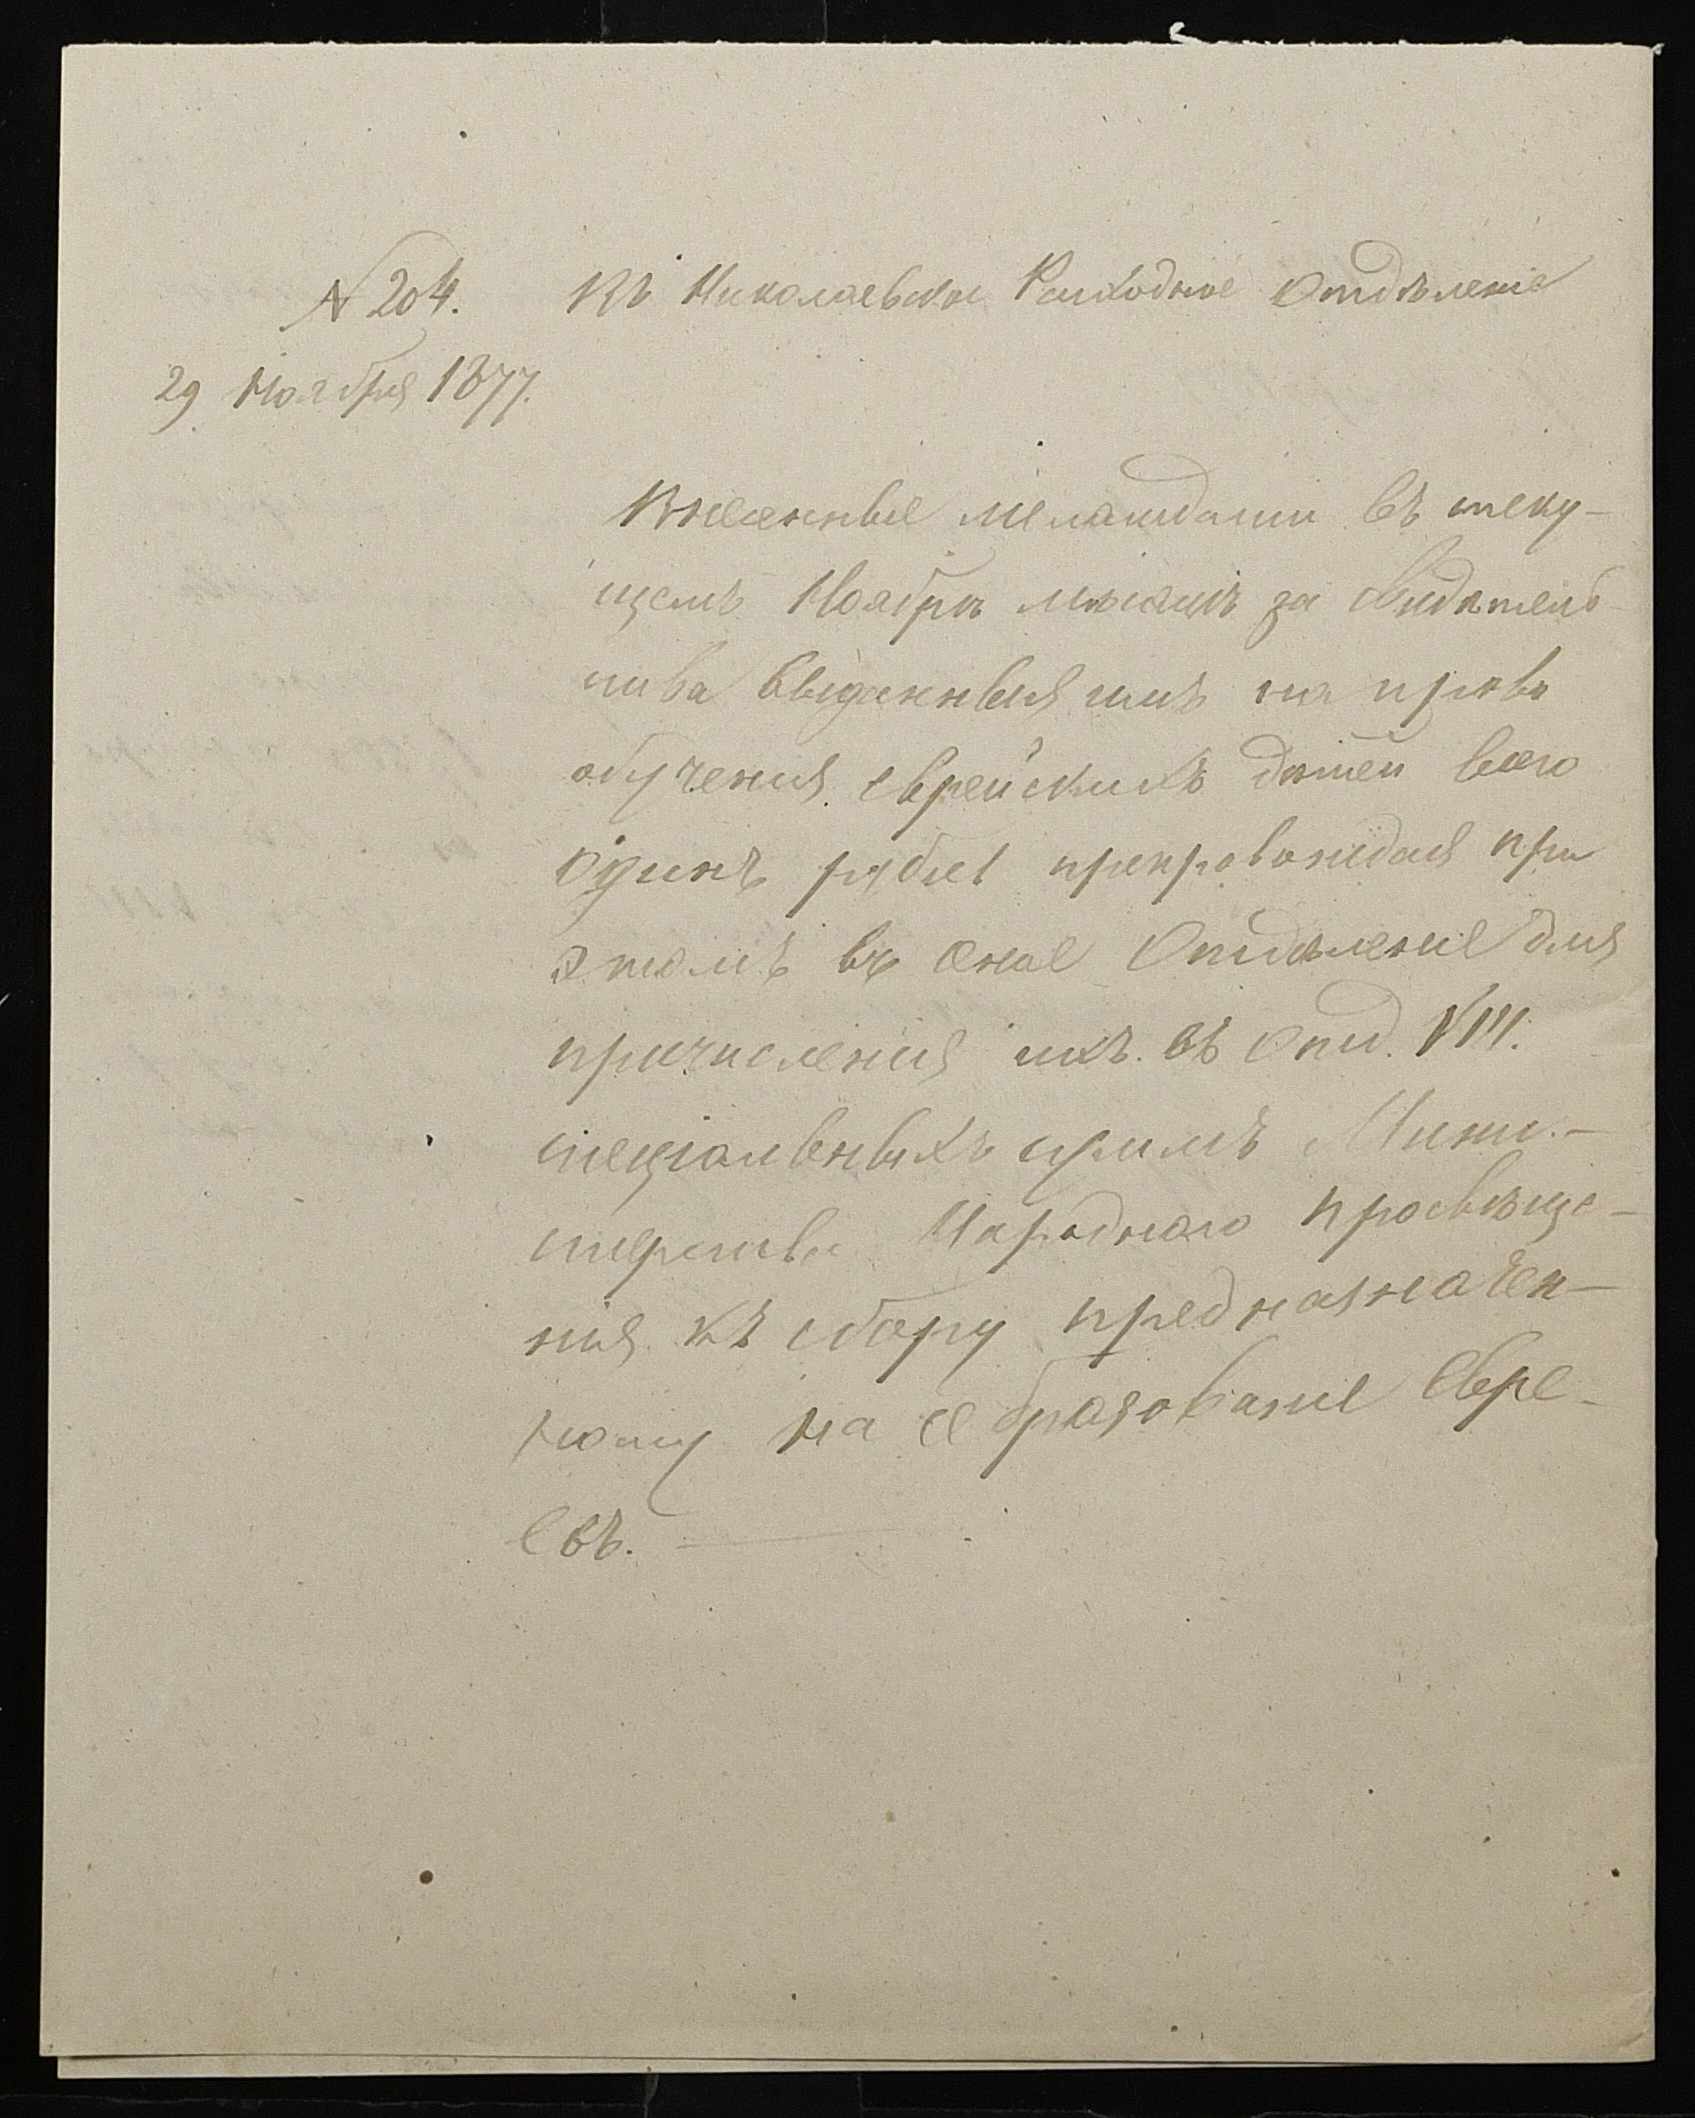 № 204. Въ Николаевское Расходное Отдѣленіе
29 Ноября 1877.
Внесенные меламдами въ теку-
щемъ Ноябрѣ мѣсяцѣ за свидѣтель
ства выданныя имъ на право
обученія еврейскихъ дѣтей всего
одинъ рубль препровождая при
этомъ въ оное Отдѣленіе для
причисленія ихъ въ отд. VIII.
спеціальныхъ суммъ Мини-
стерства Народнаго просвѣще-
нія къ сбору предназначен-
ному на образованіе Евре-
евъ.